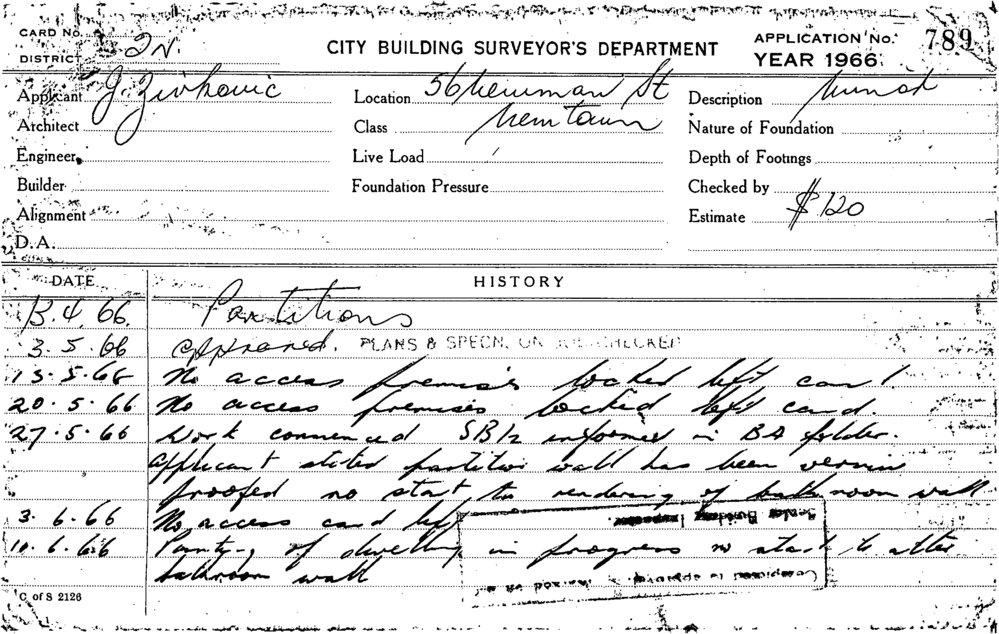 CARD No.
DISTRICT 2N.
CITY BUILDING SURVEYOR'S DEPARTMENT
APPLICATION No. 789
YEAR 1966
Applicant J. Zivkovic
Location 56 Newman St
Description
Architect
Class Newtown
Nature of Foundation
Engineer
Live Load
Depth of Footings
Builder
Foundation Pressure
Checked by
Alignment
Estimate $120
D.A.
DATE HISTORY
13.4.66. Partitions
3.5.66 approved. PLANS & SPECN. ON JOB CHECKED
13.5.66 No access premises locked left card
20.5.66 No access premises locked left card.
27.5.66 Work commenced informed in BA folder.
Applicant stated partition wall has been vermin
proofed no start to rendering of bathroom wall
3.6.66 No access card left
10.6.66 of dwelling in progress no start to
bathroom wall
Senior Building Inspector
C of S 2126